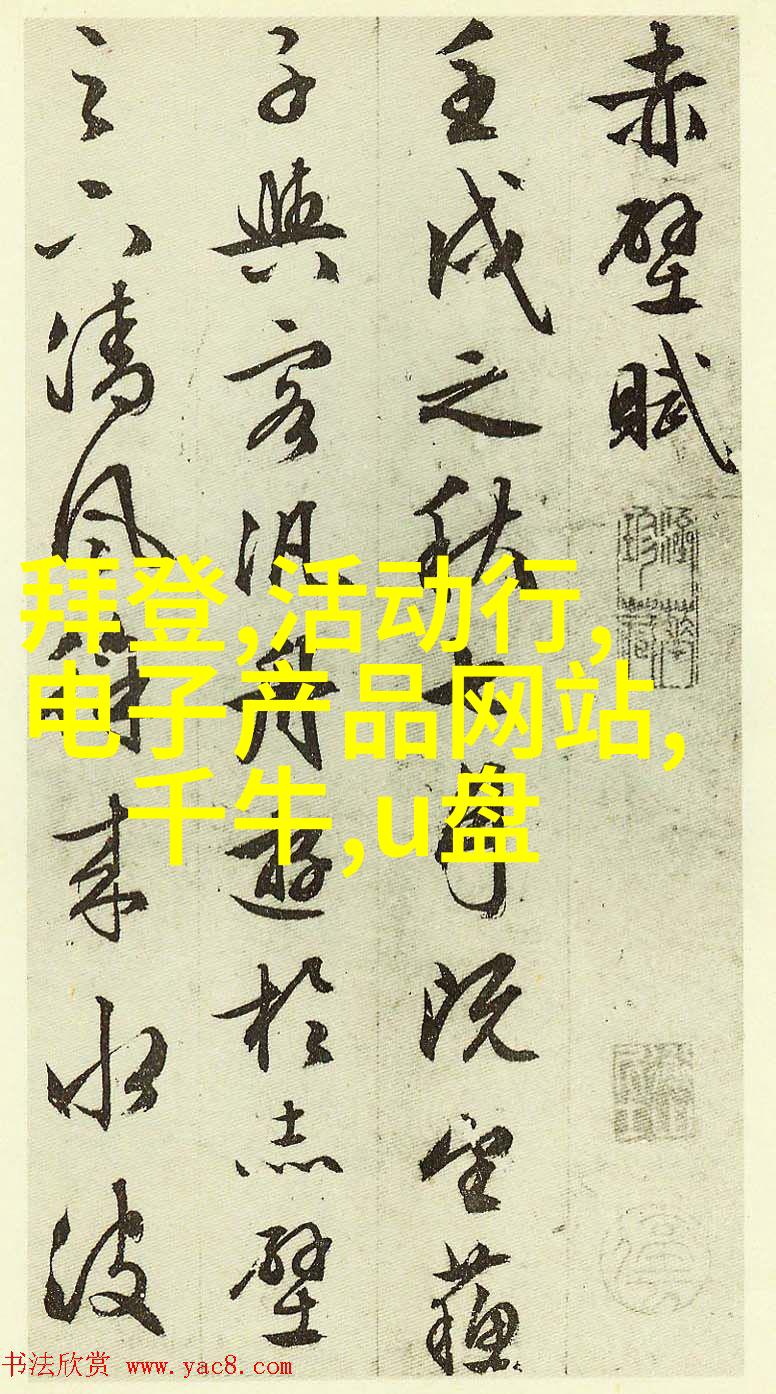 赤壁賦
壬戌之秋七月既望蘇
子與客泛舟遊於赤壁
之下清風徐來水波
拜登,活动行,
电子产品网站,
千牛,u盘
书法欣赏 www.yac8.com